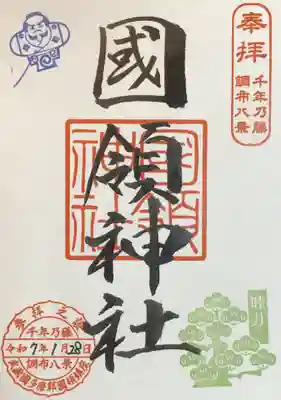 奉拝
千年乃藤
調布八景
國領神社
國領神社
睦月
参拝之証
千年乃藤
令和7年1月28日
調布八景